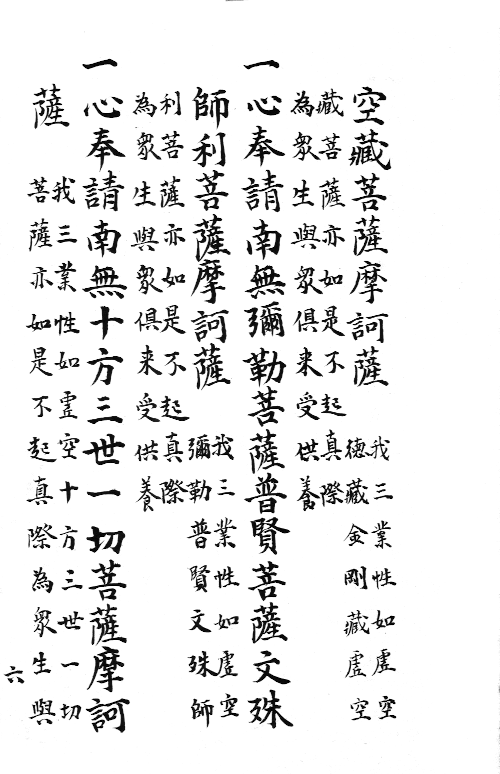 空藏菩薩摩訶薩
我三業性如虛空
德藏金剛藏虛空
藏菩薩亦如是不起真際
為眾生與眾俱来受供養
一心奉請南無彌勒菩薩普賢菩薩文殊
師利菩薩摩訶薩
我三業性如虛空
彌勒普賢文殊師
利菩薩亦如是不起真際
為眾生與眾俱来受供養
一心奉請南無十方三世一切菩薩摩訶
薩
我三業性如虛空十方三世一切
菩薩亦如是不起真際為眾生與
六